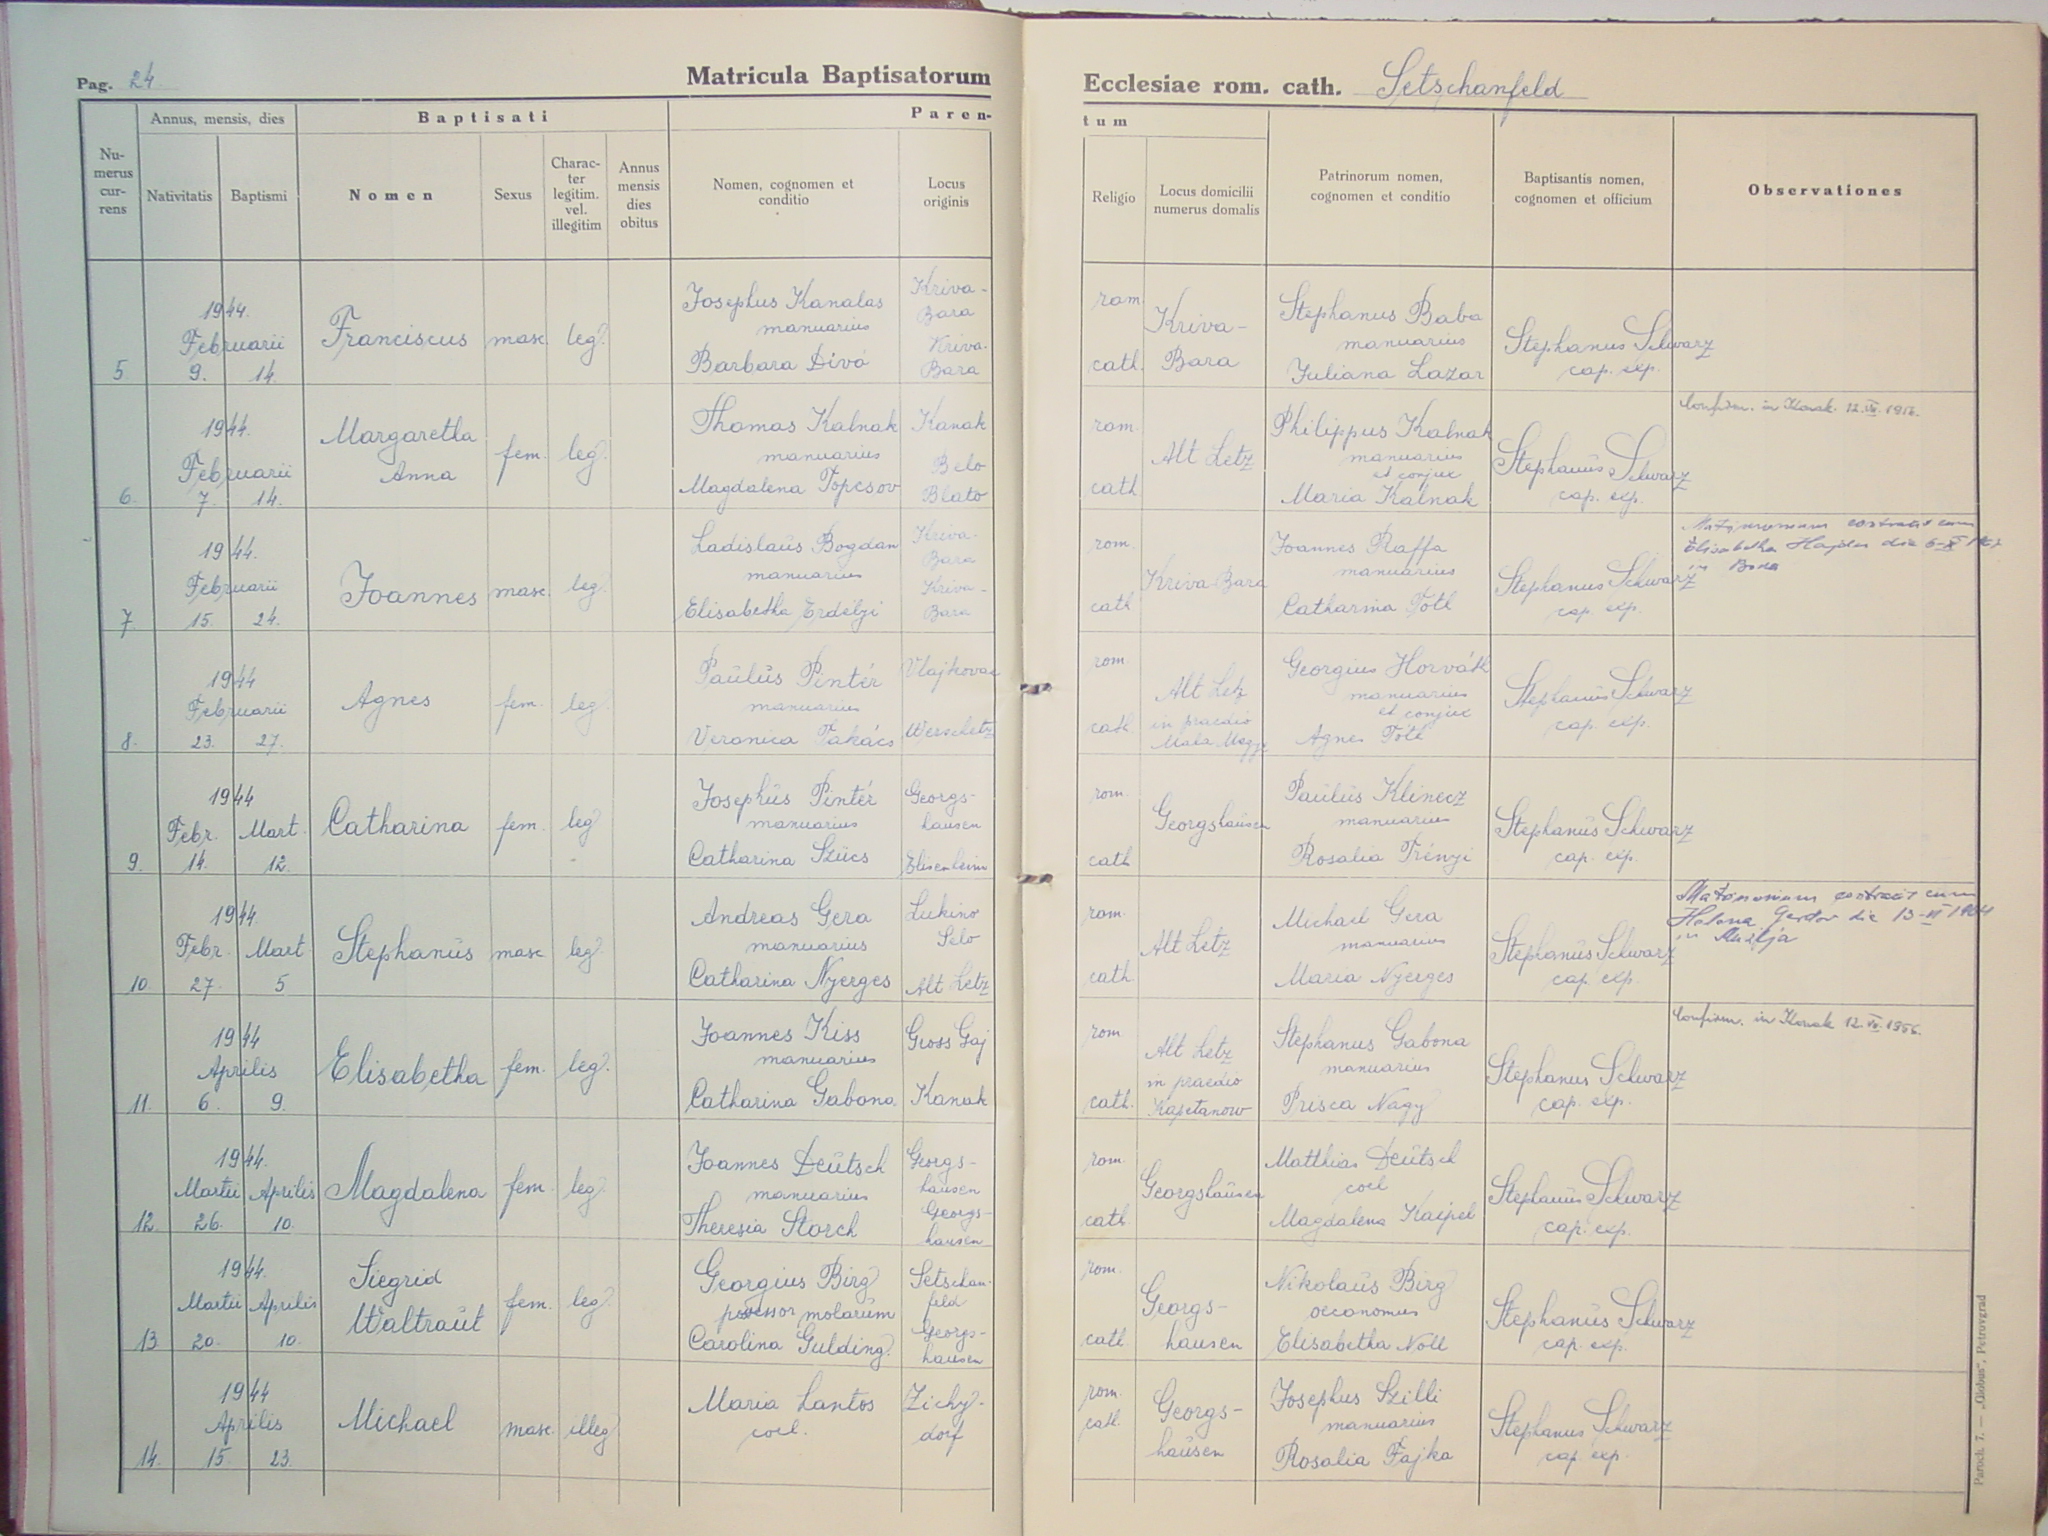 Pag. 24
Matricula Baptisatorum
Ecclesiae rom. cath. Setschanfeld
Numerus currens
Annus, mensis, dies
Nativitatis
Baptismi
Baptisati
Nomen
Sexus
Charac-
ter
legitim.
vel.
illegitim
Annus
mensis
dies
obitus
Paren-
tum
Nomen, cognomen et
conditio
Locus
originis
Religio
Locus domicilii
numerus domalis
Patrinorum nomen,
cognomen et conditio
Baptisantis nomen,
cognomen et officium
Observationes
5 1944. Februarii 9. 14. Franciscus masc. leg.
Josephus Kanalas manuarius Kriva-Bara
Barbara Divó Kriva-Bara
rom. cath. Kriva-Bara
Stephanus Baba manuarius
Juliana Lazar
Stephanus Schwarz cap. exp.
6. 1944. Februarii 7. 14. Margaretha Anna fem. leg.
Thomas Kalnak manuarius Kanak
Magdalena Topcsov Belo Blato
rom. cath Alt Letz
Philippus Kalnak manuarius et conjux
Maria Kalnak
Stephanus Schwarz cap. exp.
Confirm. in Konak 12.
7. 1944. Februarii 15. 24. Joannes masc. leg.
Ladislaus Bogdan manuarius Kriva-Bara
Elisabetha Erdélyi Kriva-Bara
rom. cath Kriva Bara
Joannes Raffa manuarius
Catharina Toth
Stephanus Schwarz cap. exp.
Matrimonium contraxit cum
Elisabetha Hajdu die 6-
in
8. 1944 Februarii 23. 27. Agnes fem. leg.
Paulus Pintér manuarius Vlajkovac
Veronica Takács Werschetz
rom. cath Alt Letz in praedio Mala
Georgius Horváth manuarius et conjux
Agnes Tóth
Stephanus Schwarz cap. exp.
9. 1944 Febr. 14. Mart. 12. Catharina fem. leg
Josephus Pintér manuarius Georgs-hausen
Catharina Szücs Elisenheim
rom. cath Georgshausen
Paulus Klinecz manuarius
Rosalia Trényi
Stephanus Schwarz cap. exp.
10 1944. Febr. 27. Mart. 5 Stephanus masc. leg.
Andreas Gera manuarius Lukino Selo
Catharina Nyerges Alt Letz
rom. cath Alt Letz
Michael Gera manuarius
Maria Nyerges
Stephanus Schwarz cap. exp.
Matrimonium contraxit cum
die 13-VI 1964
in
11. 1944 Aprilis 6. 9. Elisabetha fem. leg.
Joannes Kiss manuarius Gross Gaj
Catharina Gabona Kanak
rom. cath. Alt Letz in praedio Kapetanow
Stephanus Gabona manuarius
Prisca Nagy
Stephanus Schwarz cap. exp.
Confirm. in Konak 12. 1956.
12. 1944. Martii 26. Aprilis 10. Magdalena fem. leg.
Joannes Deutsch manuarius Georgs-hausen
Theresia Storch Georgs-hausen
rom. cath. Georgshausen
Matthias Deutsch coel
Magdalena Kaipel
Stephanus Schwarz cap. exp.
13 1944. Martii 20. Aprilis 10. Siegrid Waltraut fem. leg.
Georgius Birg possessor molarum Setschanfeld
Carolina Gulding Georgs-hausen
rom. cath Georgs-hausen
Nikolaus Birg oeconomus
Elisabetha Noll
Stephanus Schwarz cap. exp.
14. 1944 Aprilis 15. 23. Michael masc. illeg
Maria Lantos coel. Zichy-dorf
rom. cath. Georgs-hausen
Josephus Szilli manuarius
Rosalia Fajka
Stephanus Schwarz cap. exp.
Paroch. 7. — „Globus“, Petrovgrad